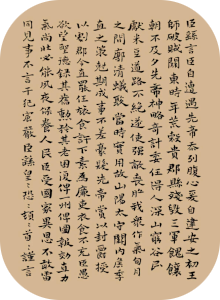 臣繇言臣自遭遇先帝忝列腹心爰自建安之初王
師破賊關東時年荒穀貴郡縣殘毀三軍餽饟
朝不及夕先帝神略奇計委任得人深山窮谷民
獻米豆道路不絕遂使強敵喪膽我衆作氣旬月
之間廓清蟻聚當時實用故山陽太守關內侯季
直之策剋期成事不差豪髮先帝賞以封爵授
以劇郡今直罷任旅食許下素為廉吏衣食不充臣愚
欲望聖德錄其舊勳矜其老困復俾一州俾圖報效直力
氣尚壯必能夙夜保養人民臣受國家異恩不敢雷
同見事不言干犯宸嚴臣繇皇〻恐〻頓〻首〻謹言